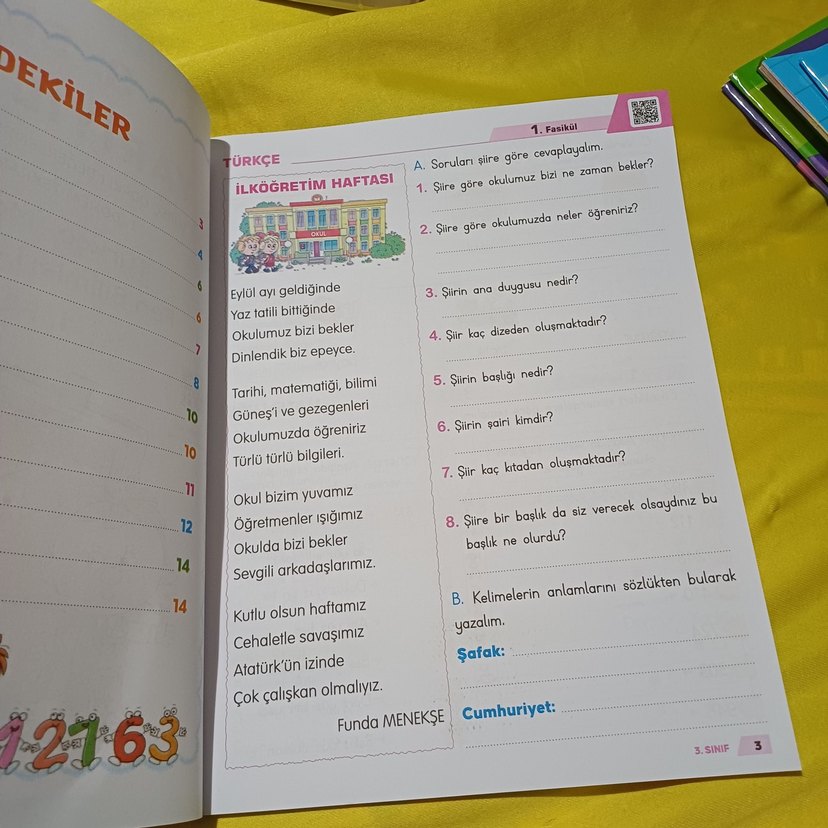 DEKİLER
3
4
6
6
7
8
10
10
11
12
14
14
1 2 1 6 3
1. Fasikül
TÜRKÇE
İLKÖĞRETİM HAFTASI
OKUL
Eylül ayı geldiğinde
Yaz tatili bittiğinde
Okulumuz bizi bekler
Dinlendik biz epeyce.
Tarihi, matematiği, bilimi
Güneş'i ve gezegenleri
Okulumuzda öğreniriz
Türlü türlü bilgileri.
Okul bizim yuvamız
Öğretmenler ışığımız
Okulda bizi bekler
Sevgili arkadaşlarımız.
Kutlu olsun haftamız
Cehaletle savaşımız
Atatürk'ün izinde
Çok çalışkan olmalıyız.
Funda MENEKŞE
A. Soruları şiire göre cevaplayalım.
1. Şiire göre okulumuz bizi ne zaman bekler?
2. Şiire göre okulumuzda neler öğreniriz?
3. Şiirin ana duygusu nedir?
4. Şiir kaç dizeden oluşmaktadır?
5. Şiirin başlığı nedir?
6. Şiirin şairi kimdir?
7. Şiir kaç kıtadan oluşmaktadır?
8. Şiire bir başlık da siz verecek olsaydınız bu
başlık ne olurdu?
B. Kelimelerin anlamlarını sözlükten bularak
yazalım.
Şafak:
Cumhuriyet:
3. SINIF 3